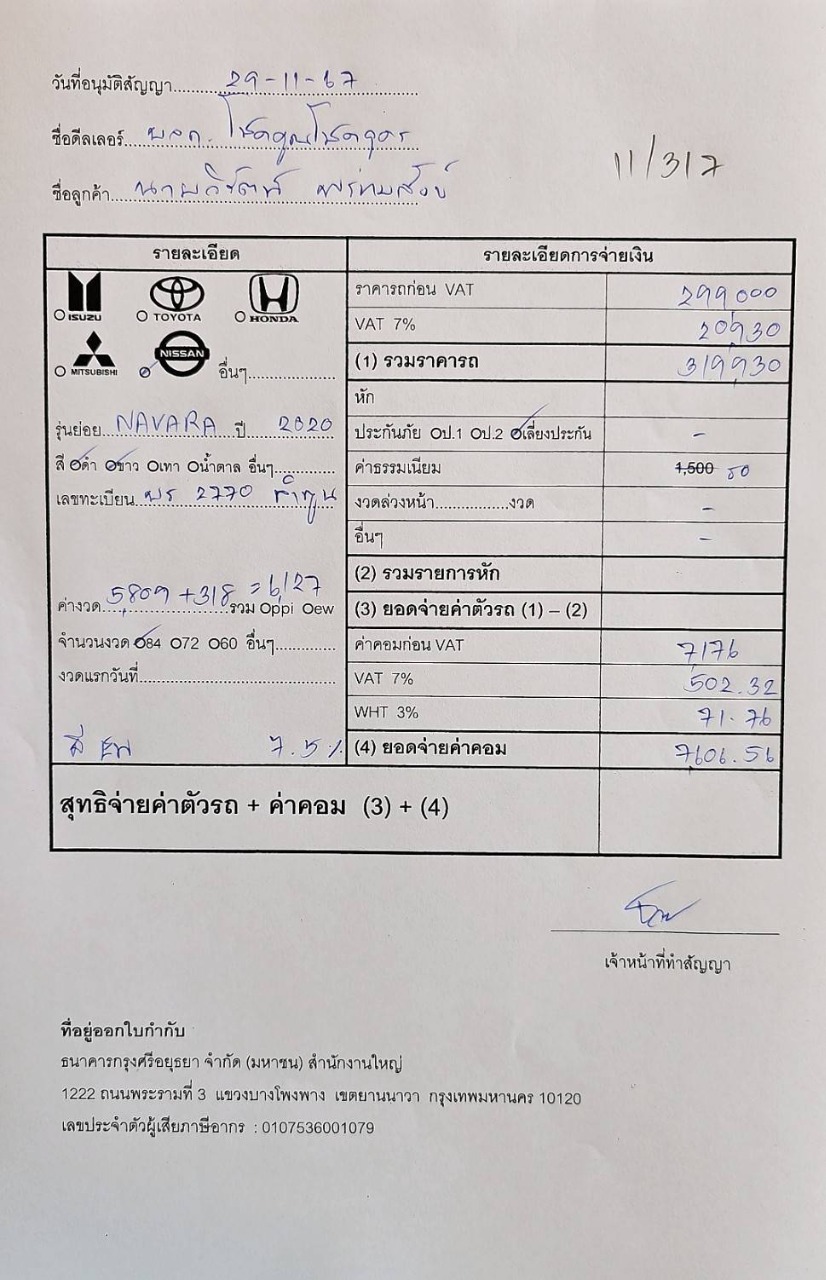 วันที่อนุมัติสัญญา 29-11-67
ชื่อดีลเลอร์
11/317
ชื่อลูกค้า
รายละเอียด
รายละเอียดการจ่ายเงิน
ISUZU TOYOTA HONDA
MITSUBISHI NISSAN อื่นๆ
รุ่นย่อย NAVARA ปี 2020
สี ดำ ขาว เทา น้ำตาล อื่นๆ
เลขทะเบียน 2770 ลำพูน
ค่างวด 5,809 + 318 = 6,127 รวม ppi ew
จำนวนงวด 84 72 60 อื่นๆ
งวดแรกวันที่
7.5%
ราคารถก่อน VAT 299,000
VAT 7% 20,930
(1) รวมราคารถ 319,930
หัก
ประกันภัย ป.1 ป.2 เลี่ยงประกัน -
ค่าธรรมเนียม 1,500 50
งวดล่วงหน้า งวด -
อื่นๆ -
(2) รวมรายการหัก
(3) ยอดจ่ายค่าตัวรถ (1) – (2)
ค่าคอมก่อน VAT 7,176
VAT 7% 502.32
WHT 3% 71.76
(4) ยอดจ่ายค่าคอม 7,606.56
สุทธิจ่ายค่าตัวรถ + ค่าคอม (3) + (4)
เจ้าหน้าที่ทำสัญญา
ที่อยู่ออกใบกำกับ
ธนาคารกรุงศรีอยุธยา จำกัด (มหาชน) สำนักงานใหญ่
1222 ถนนพระรามที่ 3 แขวงบางโพงพาง เขตยานนาวา กรุงเทพมหานคร 10120
เลขประจำตัวผู้เสียภาษีอากร : 0107536001079